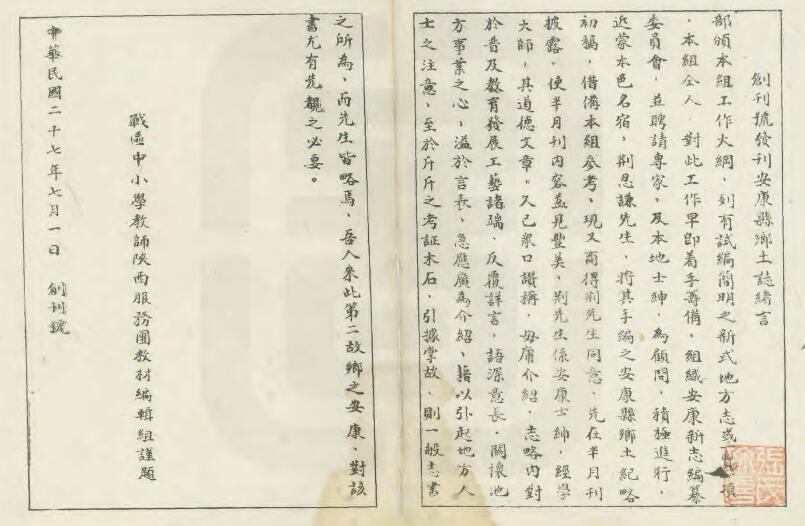 創刊號發刊安康縣鄉土誌緒言
部頒本組工作大綱，列有試編簡明之新式地方志或
，本組仝人，對此工作早即着手籌備，組織安康新志編纂
委員會，並聘請專家，及本地士紳，為顧問，積極進行，
近蒙本邑名宿，荆思謙先生，將其手編之安康縣鄉土紀略
初稿，借備本組參考，現又商得荆先生同意，先在半月刊
披露，使半月刊內容益見豐美，荆先生係安康士紳，經學
大師，其道德文章，久已衆口讚稱，毋庸介紹，志略內對
於普及教育發展工藝諸端，反覆詳言，語深意長，關懷地
方事業之心，溢於言表，急應廣為介紹，藉以引起地方人
士之注意，至於斤斤之考証木石，引據掌故，則一般志書
之所為，而先生皆略焉，吾人來此第二故鄉之安康，對該
書尤有先覩之必要。
戰區中小學教師陝西服務團教材編輯組謹題
中華民國二十七年七月一日　創刊號